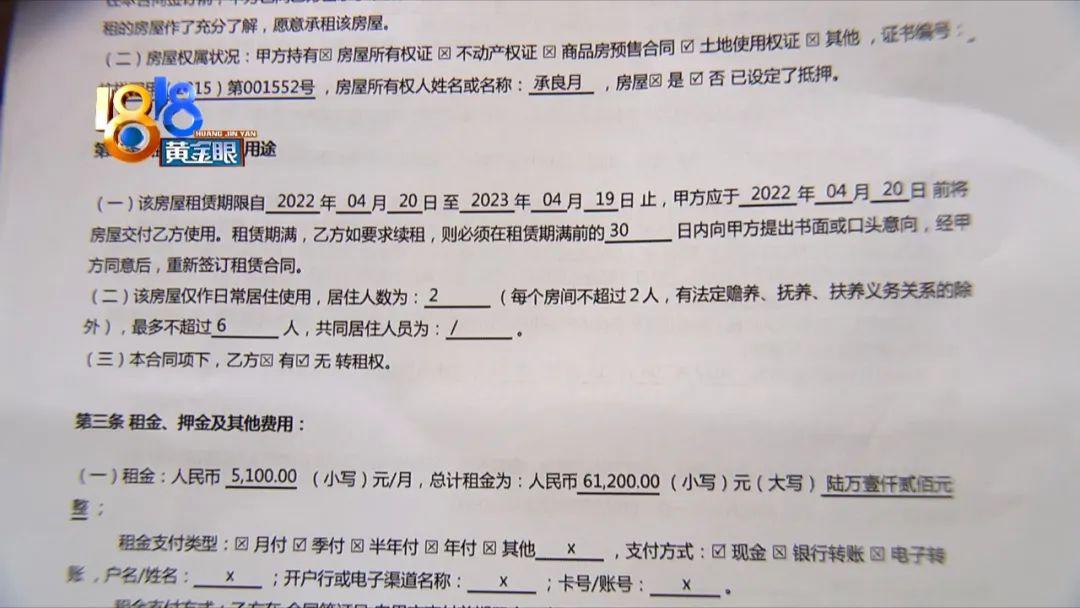 租的房屋作了充分了解，愿意承租该房屋。
（二）房屋权属状况：甲方持有☒ 房屋所有权证 ☒ 不动产权证 ☒ 商品房预售合同 ☑ 土地使用权证 ☒ 其他 ，证书编号：
15）第001552号 ，房屋所有权人姓名或名称： 承良月 ，房屋☒ 是 ☑ 否 已设定了抵押。
1818
HUANG JIN YAN
黄金眼
用途
（一）该房屋租赁期限自 2022 年 04 月 20 日 至 2023 年 04 月 19 日 止，甲方应于 2022 年 04 月 20 日 前将
房屋交付乙方使用。租赁期满，乙方如要求续租，则必须在租赁期满前的30 日内向甲方提出书面或口头意向，经甲
方同意后，重新签订租赁合同。
（二）该房屋仅作日常居住使用，居住人数为： 2 （每个房间不超过 2 人，有法定赡养、抚养、扶养义务关系的除
外），最多不超过 6 人，共同居住人员为： / 。
（三）本合同项下，乙方☒ 有☑ 无 转租权。
第三条 租金、押金及其他费用：
（一）租金：人民币 5,100.00 （小写）元/月，总计租金为：人民币 61,200.00 （小写）元（大写） 陆万壹仟贰佰元
整 ；
租金支付类型：☒ 月付 ☑ 季付 ☒ 半年付 ☒ 年付 ☒ 其他 x ，支付方式：☑ 现金 ☒ 银行转账 ☒ 电子转
账 ，户名/姓名： x ；开户行或电子渠道名称： x ；卡号/账号： x 。